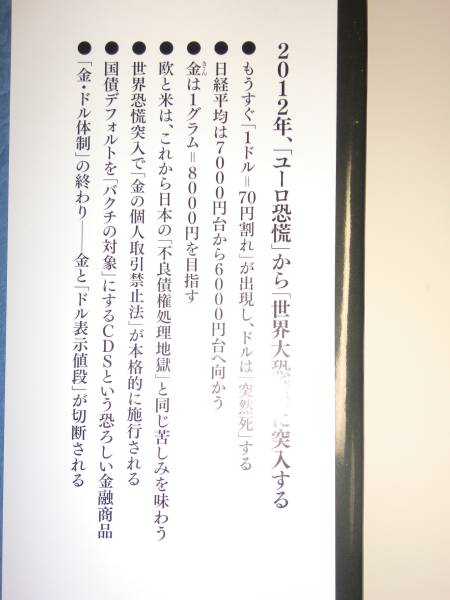 2012年、「ユーロ恐慌」から「世界大恐慌」に突入する
●もうすぐ「1ドル=70円割れ」が出現し、ドルは「突然死」する
●日経平均は7000円台から6000円台へ向かう
●金は1グラム=8000円を目指す
きん
●欧と米は、これから日本の「不良債権処理地獄」と同じ苦しみを味わう
●世界恐慌突入で「金の個人取引禁止法」が本格的に施行される
●国債デフォルトを「バクチの対象」にするCDSという恐ろしい金融商品
●「金・ドル体制」の終わり――金と「ドル表示値段」が切断される